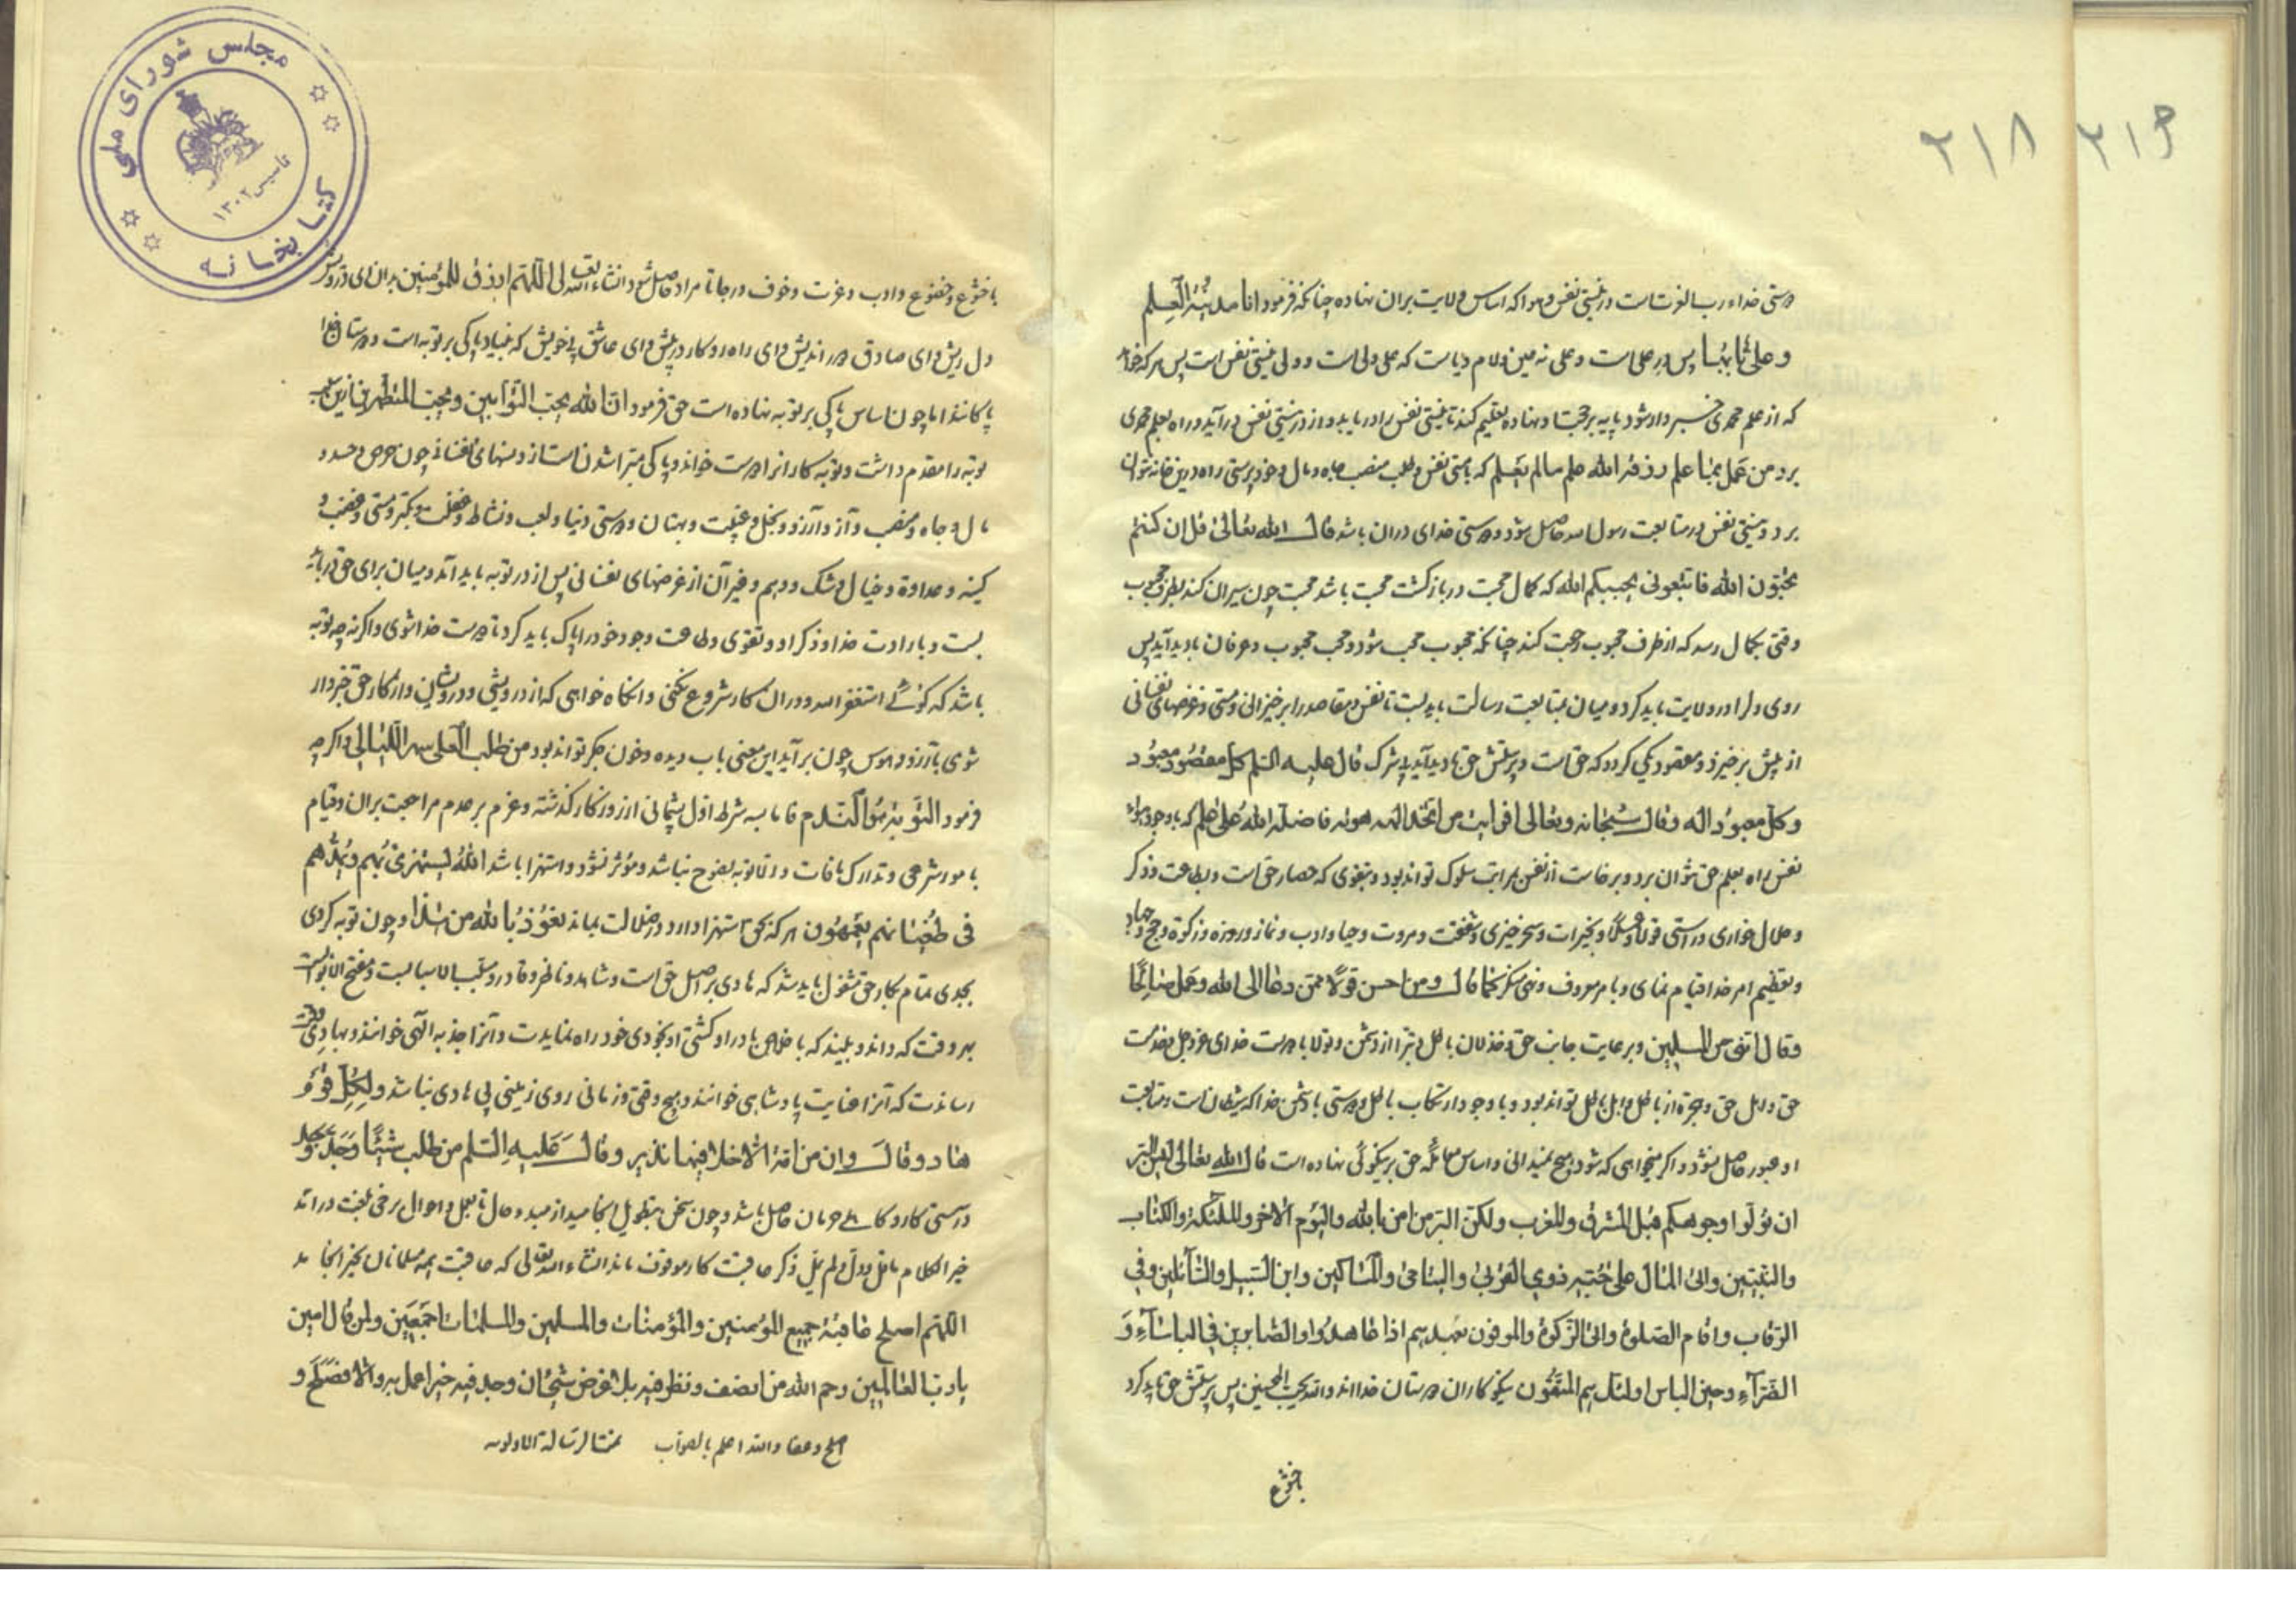 ۲۱۸ ۲۱۹
دوستی خداء رب العزت است در نیستی نفس و هوا که اساس ولایت بران نهاده چنانکه فرمود انا مدینة العلم
و علی بابها پس در علی است و علی نه عین و لام و یاست که علی ولی است و ولی نیستی نفس است پس هر که خواهد
که از علم محمدی خبردار شود پایه بر محبت او نهاده تعلیم کند تا نیستی نفس را دریابد و از در نیستی نفس درآید و راه بعلم محمدی
برد من عمل بما علم رزقه الله علم مالم یعلم که با هستی نفس و طلب منصب جاه و مال و خودپرستی راه درین خانه نتوان
برد و نیستی نفس در متابعت رسول الله حاصل شود و دوستی خدای دران باشد قال الله تعالی قل ان کنتم
تحبون الله فاتبعونی یحببکم الله که کمال محبت در بازگشت محبت باشد محبت چون سیران کند بطرف محبوب
وقتی بکمال رسد که از طرف محبوب رجعت کند چنانکه محبوب محب شود و محب محبوب و عرفان بادید آید پس
روی دل را در ولایت باید کرد و میان بمتابعت رسالت باید بست تا نفس و مقاصد را برخیزانی و مستی و غرضهای نفسانی
از پیش برخیزد و مقصود یکی گردد که حق است و پرستش حق بادید آید بی شرک قال علیه السلم کل مقصود معبود
و کل معبود اله و قال سبحانه و تعالی افرایت من اتخذ الهه هواه فاضله الله علی علم که باوجود هواء
نفس راه بعلم حق نتوان برد و برخاست از نفس بمراتب سلوک تواند بود و بتقوی که حصار حق است و بطاعت و ذکر
و حلال خواری و راستی قولا و فعلا و بخیرات و سحرخیزی و شفقت و مروت و حیا و ادب و نماز و روزه و زکوة و حج و جهاد
و تعظیم امر خدا قیام نمای و بامر معروف و نهی منکر کما قال و من احسن قولا ممن دعا الی الله و عمل صالحا
و قال اننی من المسلمین و برعایت جانب حق و خذلان باطل و تبرا از دشمن و تولا با دوست خدای عز و جل
حق و اهل حق و هجرة از باطل و اهل باطل تواند بود و باوجود ارتکاب باطل و دوستی با دشمن خدا که شیطان است و متابعت
او عبور حاصل نشود و اگر میخواهی که شود هیچ نمیدانی و اساس معامله حق بر نیکوئی نهاده است قال الله تعالی لیس البر
ان تولوا وجوهکم قبل المشرق والمغرب ولکن البر من امن بالله والیوم الاخر والملئکة والکتاب
والنبیین واتی المال علی حبه ذوی القربی والیتامی والمساکین وابن السبیل والسائلین وفی
الرقاب واقام الصلوة واتی الزکوة والموفون بعهدهم اذا عاهدوا والصابرین فی الباساء و
الضراء وحین الباس اولئک هم المتقون نیکوکاران دوستان خدااند والله یحب المحسنین پس پرستش حق باید کرد
بخشوع
مجلس شورای ملی
تاسیس ۱۳۰۲
کتابخانه
با خشوع و خضوع و ادب و عزت و خوف و رجا تا مراد حاصل شود انشاء الله تعالی اللهم ارزق للمؤمنین بران ای درویش
دل ریش و ای صادق دوراندیش و ای راه رو کار درپیش و ای عاشق بی خویش که بنیاد پاکی بر توبه است و دوستان خدا
پاکانند اما چون اساس پاکی بر توبه نهاده است حق فرمود ان الله یحب التوابین ویحب المتطهرین ازین سبب
توبه را مقدم داشت و توبه کارانرا دوست خواند و پاکی مبرا شدن است از دوستیهای نفسانی چون حرص و حسد و
مال و جاه و منصب و آز و آرزو و بخل و غیبت و بهتان و دوستی دنیا و لعب و نشاط و غفلت و تکبر و مستی و غضب و
کینه و عداوة و خیال و شک و وهم و غیر آن از غرضهای نفسانی پس از در توبه باید آمد و میان برای حق
بست و بارادت خدا و ذکر او و تقوی و طاعت وجود خود را پاک باید کرد تا دوست خدا شوی و اگر نه چه توبه
باشد که گوئی استغفر الله و دران کار شروع نکنی و آنگاه خواهی که از درویشی و درویشان و از کار حق خبردار
شوی بآرزو و هوس چون برآید این معنی باب دیده و خون جگر تواند بود من طلب العلی سهر اللیالی و اگرچه
فرمود التوبة هو الندم فاما سه شرط اول پشیمانی از روزگار گذشته و عزم بر عدم مراجعت بران و قیام
بامور شرعی و تدارک مافات و الا توبه نصوح نباشد و مؤثر نشود و استهزا باشد الله یستهزئ بهم ویمدهم
فی طغیانهم یعمهون هر که بحق استهزا دارد در ضلالت بماند نعوذ بالله من هذا و چون توبه کردی
بجدی تمام بکار حق مشغول باید شد که هادی بر اصل حق است و شاهد و ناظر و قادر و مسبب الاسباب است و مفتح الابواب
بهر وقت که داند و بیند که باخلاص با در او گشتی او بخودی خود راه نمایدت و آنرا جذبه الهی خوانند و بهادی وقت
رساندت که آنرا عنایت پادشاهی خوانند و هیچ وقتی و زمانی روی زمین بی هادی نباشد ولکل قوم
هاد و قال وان من امة الا خلا فیها نذیر و قال علیه السلم من طلب شیئا وجد وجد
درستی کار و کاهلی حرمان حاصل باشد و چون سخن بتطویل انجامید از مبدء حال تا بعمل و احوال برخی گفته درآمد
خیر الکلام ما قل و دل و لم یمل ذکر عاقبت کار موقوف ماند انشاء الله تعالی که عاقبت همه مسلمانان بخیر انجامد
اللهم اصلح عاقبة جمیع المؤمنین والمؤمنات والمسلمین والمسلمات اجمعین ولمن قال امین
یا رب العالمین رحم الله من انصف ونظر فیه بلا غرض شیئان وجد فیه خیرا عمل به والا فصلح و
اصلح وعفا والله اعلم بالصواب تمت الرسالة الاولی